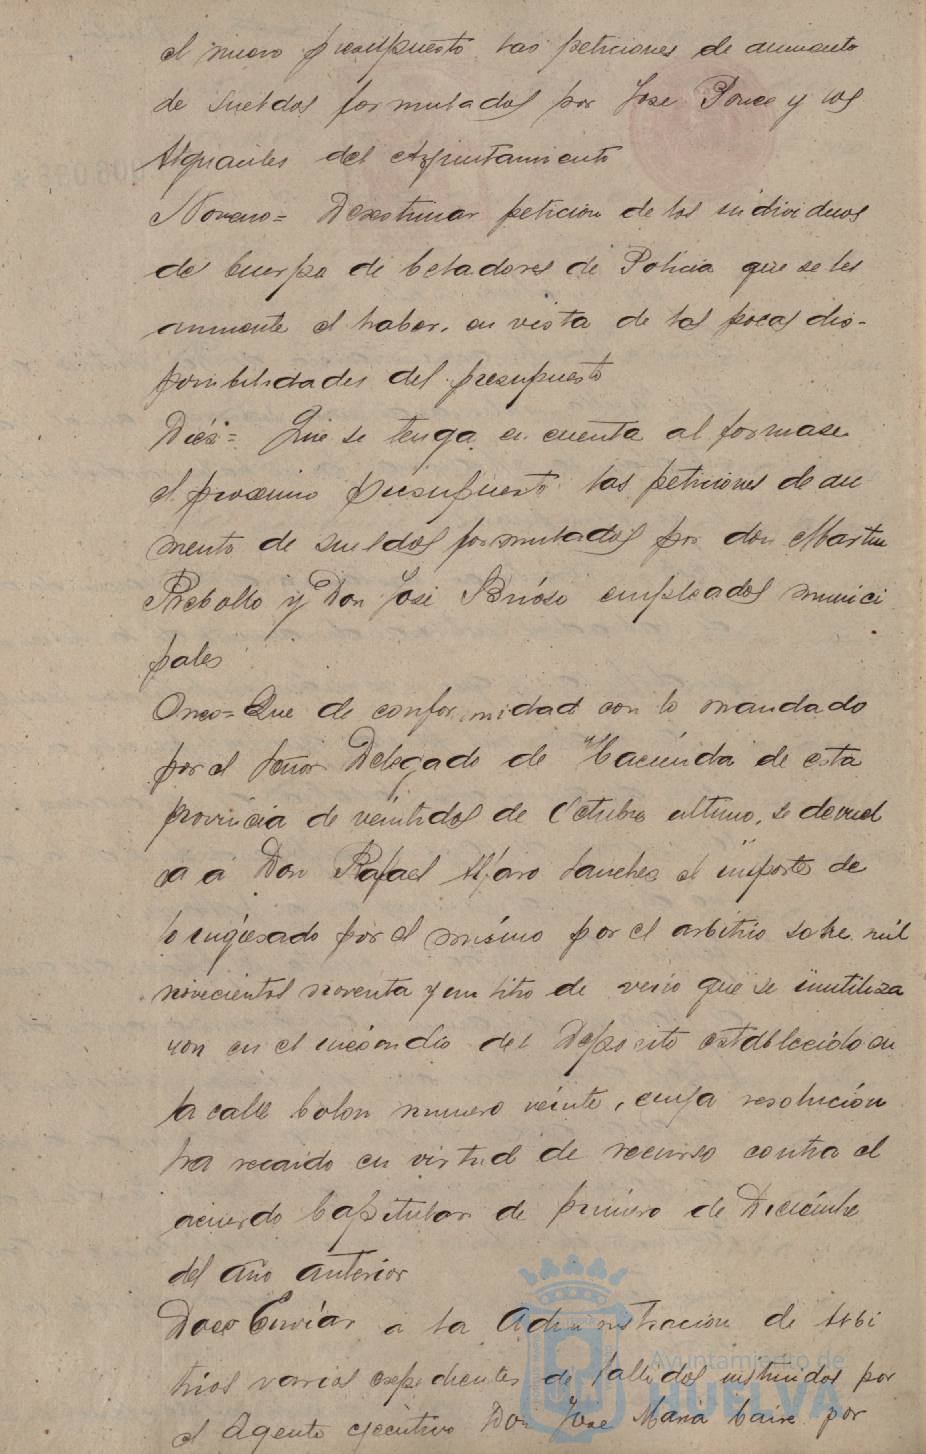 el nuevo presupuesto las peticiones de aumento
de sueldos formulados por Jose Ponce y los
Alguaciles del Ayuntamiento
Noveno= Desestimar peticion de los individuos
del Cuerpo de Celadores de Policia que se les
aumente el haber, en vista de las pocas dis-
ponibilidades del presupuesto
Diez= Que se tenga en cuenta al formase
el proximo presupuesto las peticiones de au
mento de sueldos formulados por don Martin
Rebollo y Don José Brioso empleados munici
pales
Once= Que de conformidad con lo mandado
por el señor Delegado de Hacienda de esta
provincia de veintidos de Octubre ultimo, se devuel
va a Don Rafael Alfaro Sanchez el importe de
lo ingresado por el mismo por el arbitrio sobre mil
novecientos noventa y un litro de vino que se inutiliza
ron en el incendio del Deposito establecido en
la calle Colon numero veinte, cuya resolución
ha recaido en virtud de recurso contra el
acuerdo Capitular de primero de Diciembre
del año anterior
Doce Enviar a la Administracion de Arbi
trios varios expedientes de fallidos instruidos por
el Agente ejecutivo Don Jose Maria por
Ayuntamiento de
HUELVA